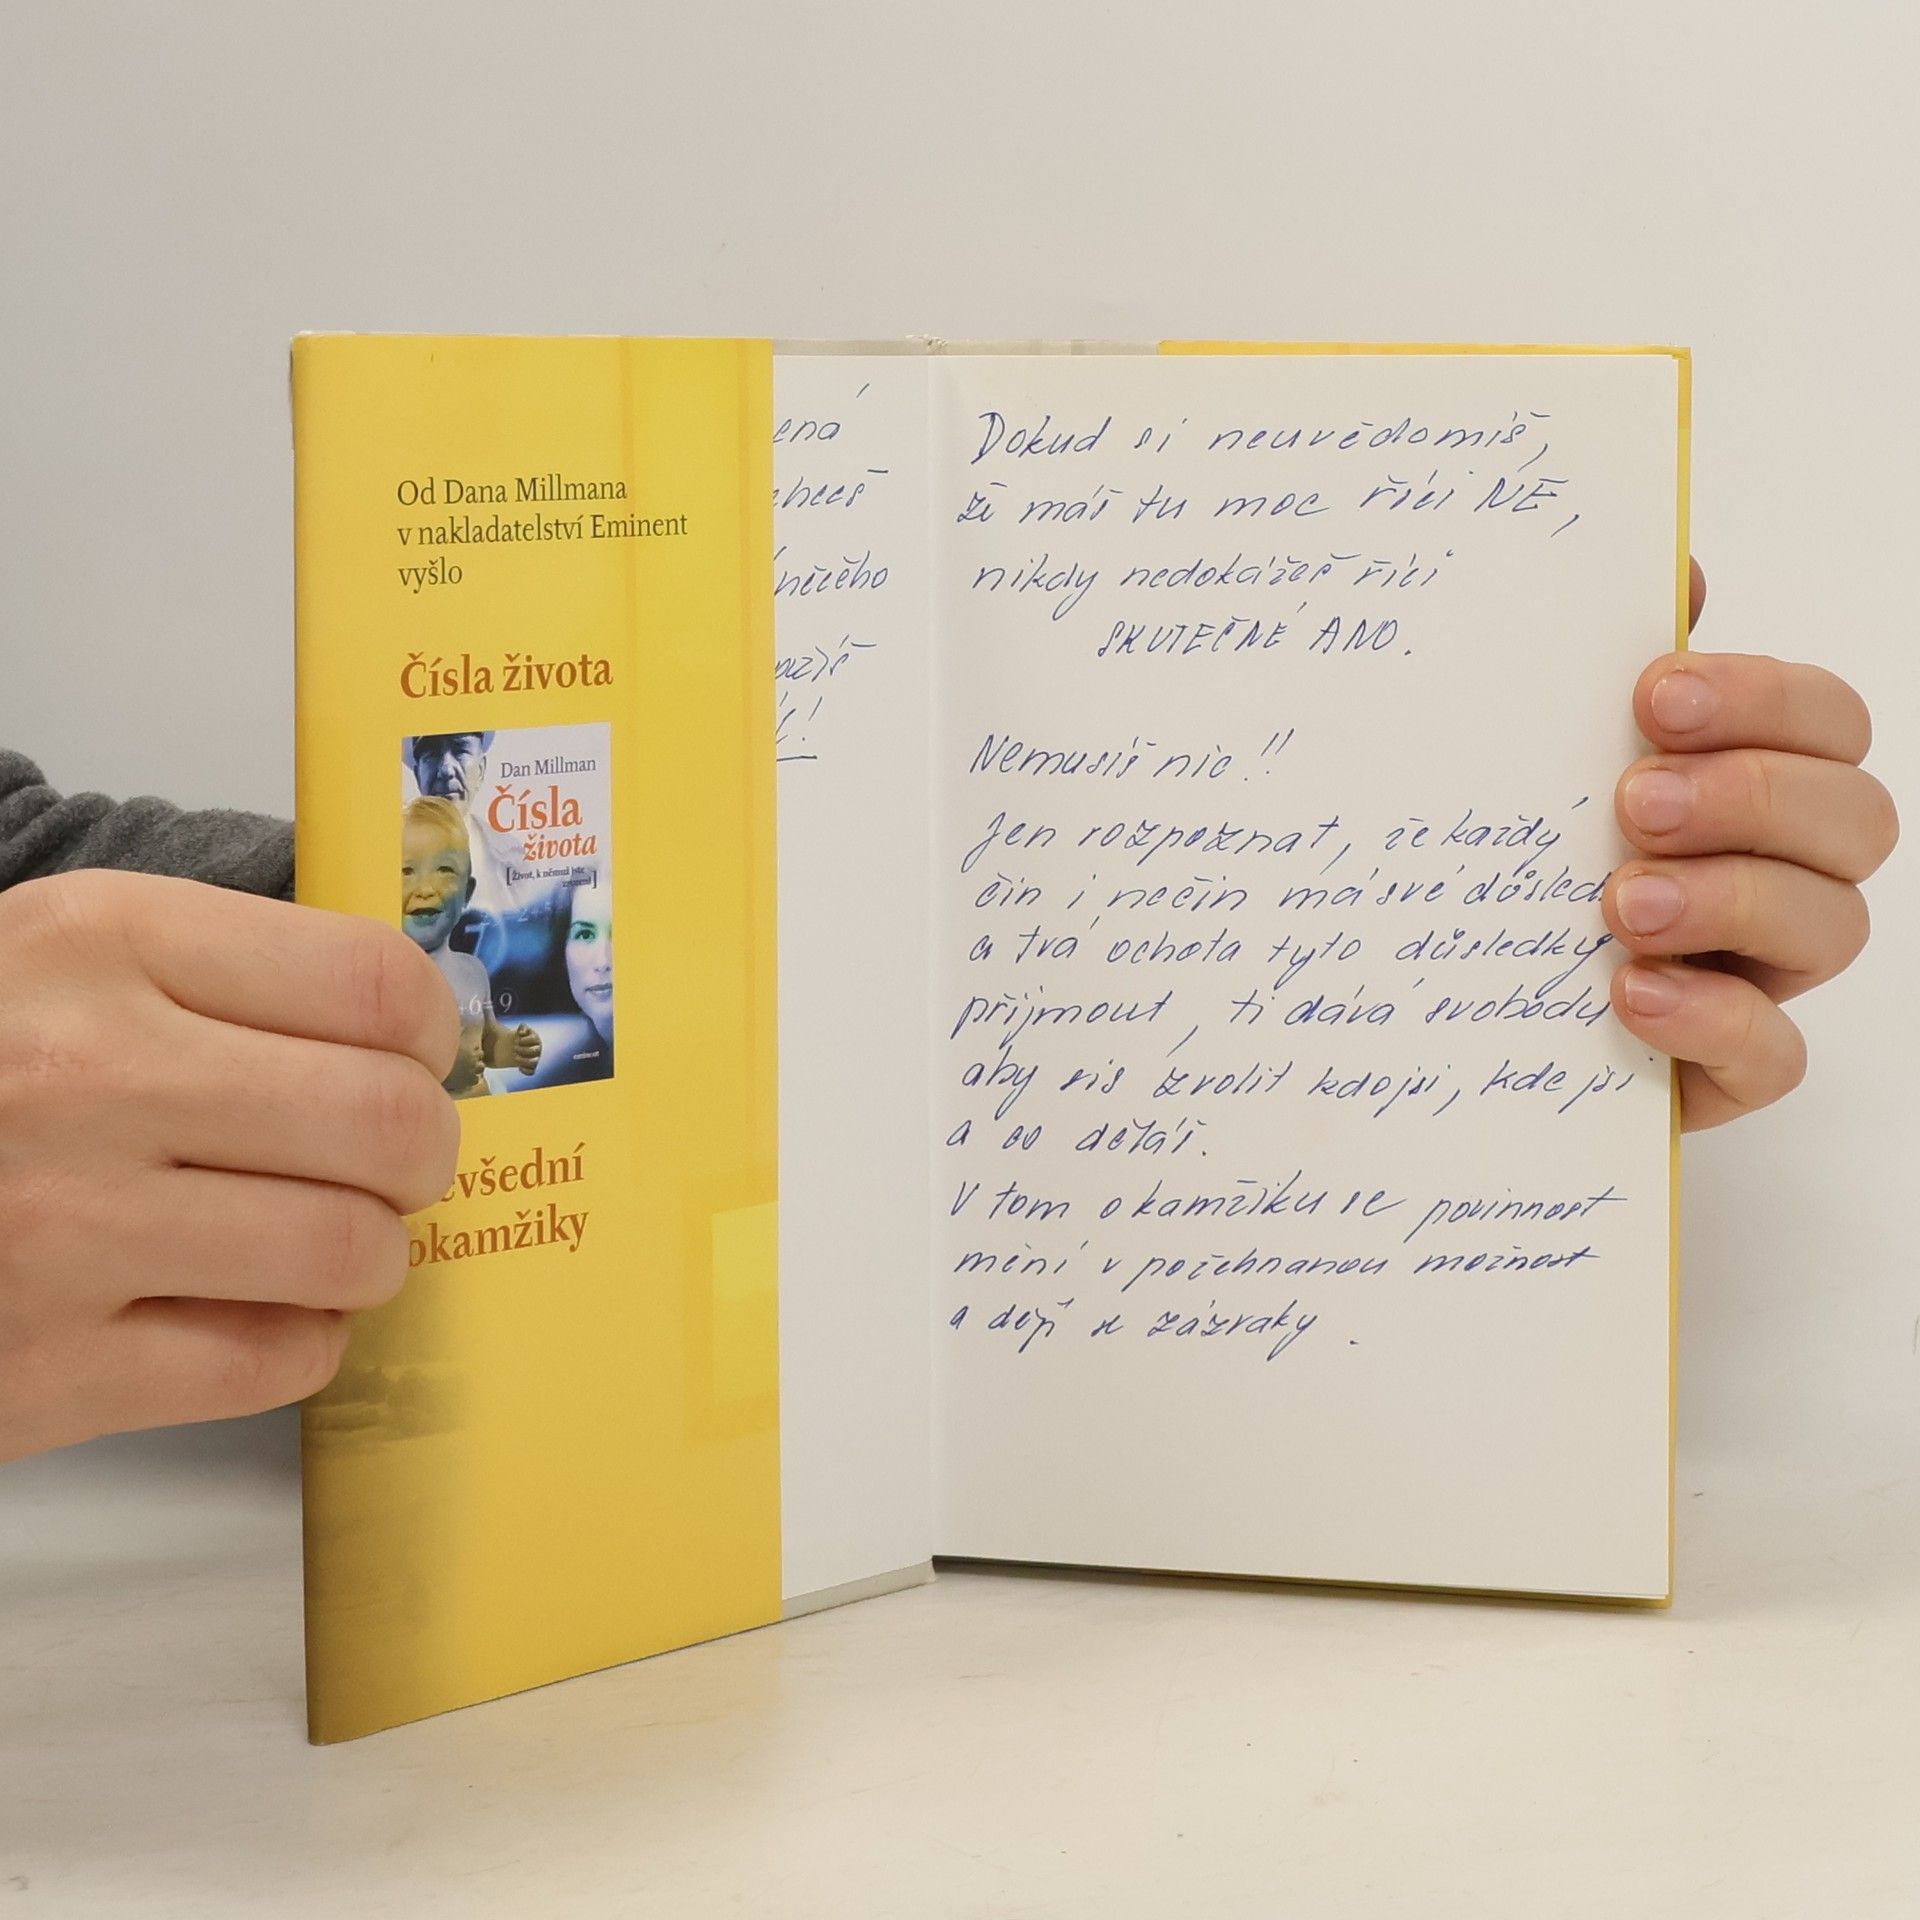 Od Dana Millmana
v nakladatelství Eminent
vyšlo
Čísla života
Dan Millman
Čísla
života
[Život, k němuž jste
zrozeni]
+6=9
eminent
evšední
okamžiky
ená
chceš
něčého
!
Dokud si neuvědomíš,
žě máš tu moc říci NE,
nikdy nedokážeš říci
SKUTEČNÉ ANO.
Nemusíš nic!!
Jen rozpoznat, že každý
čin i nečin má své důsled
a tvá ochota tyto důsledky
přijmout, ti dává svobodu
aby sis zvolil kdo jsi, kde jsi
a co děláš.
V tom okamžiku se povinnost
mění v požehnanou možnost
a dějí se zázraky.